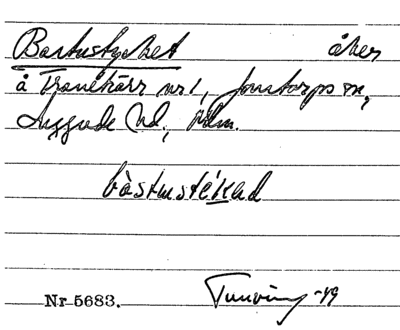 Bastustycket åker
å Tranekärr nr 1, Jonstorps sn,
Luggude hd, Mlm.
bàstustékad
Nr 5683. Tuneving -49